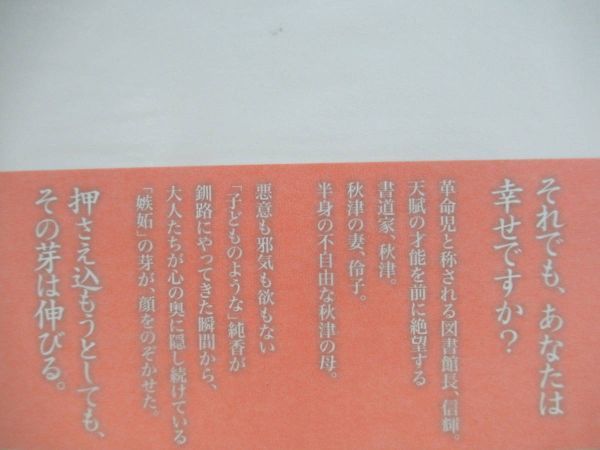 それでも、あなたは
幸せですか？
革命児と称される図書館長、信輝。
天賦の才能を前に絶望する
書道家、秋津。
秋津の妻、伶子。
半身の不自由な秋津の母。
悪意も邪気も欲もない
「子どものような」純香が
釧路にやってきた瞬間から、
大人たちが心の奥に隠し続けている
「嫉妬」の芽が、顔をのぞかせた。
押さえ込もうとしても、
その芽は伸びる。